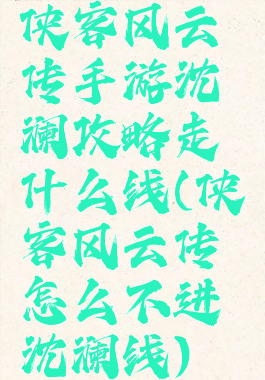 侠客风云
传手游沈
澜攻略走
什么线(侠
客风云传
怎么不进
沈澜线)